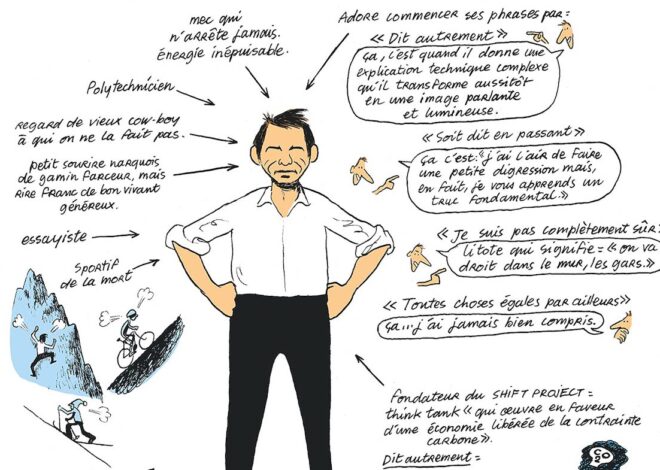 mec qui
n'arrête jamais.
énergie inépuisable.
Polytechnicien
regard de vieux cow-boy
à qui on ne la fait pas.
petit sourire narquois
de gamin farceur, mais
rire franc de bon vivant
généreux.
essayiste
sportif
de la mort
Adore commencer ses phrases par :
« Dit autrement »
ça, c'est quand il donne une
explication technique complexe
qu'il transforme aussitôt
en une image parlante
et lumineuse.
« Soit dit en passant »
ça c'est : "j'ai l'air de faire
une petite digression mais,
en fait, je vous apprends un
truc fondamental. »
« Je suis pas complètement sûr :
litote qui signifie = « on va
droit dans le mur, les gars. »
« Toutes choses égales par ailleurs »
ça... j'ai jamais bien compris.
fondateur du SHIFT PROJECT =
think tank « qui œuvre en faveur
d'une économie libérée de la contrainte
carbone ».
Dit autrement =